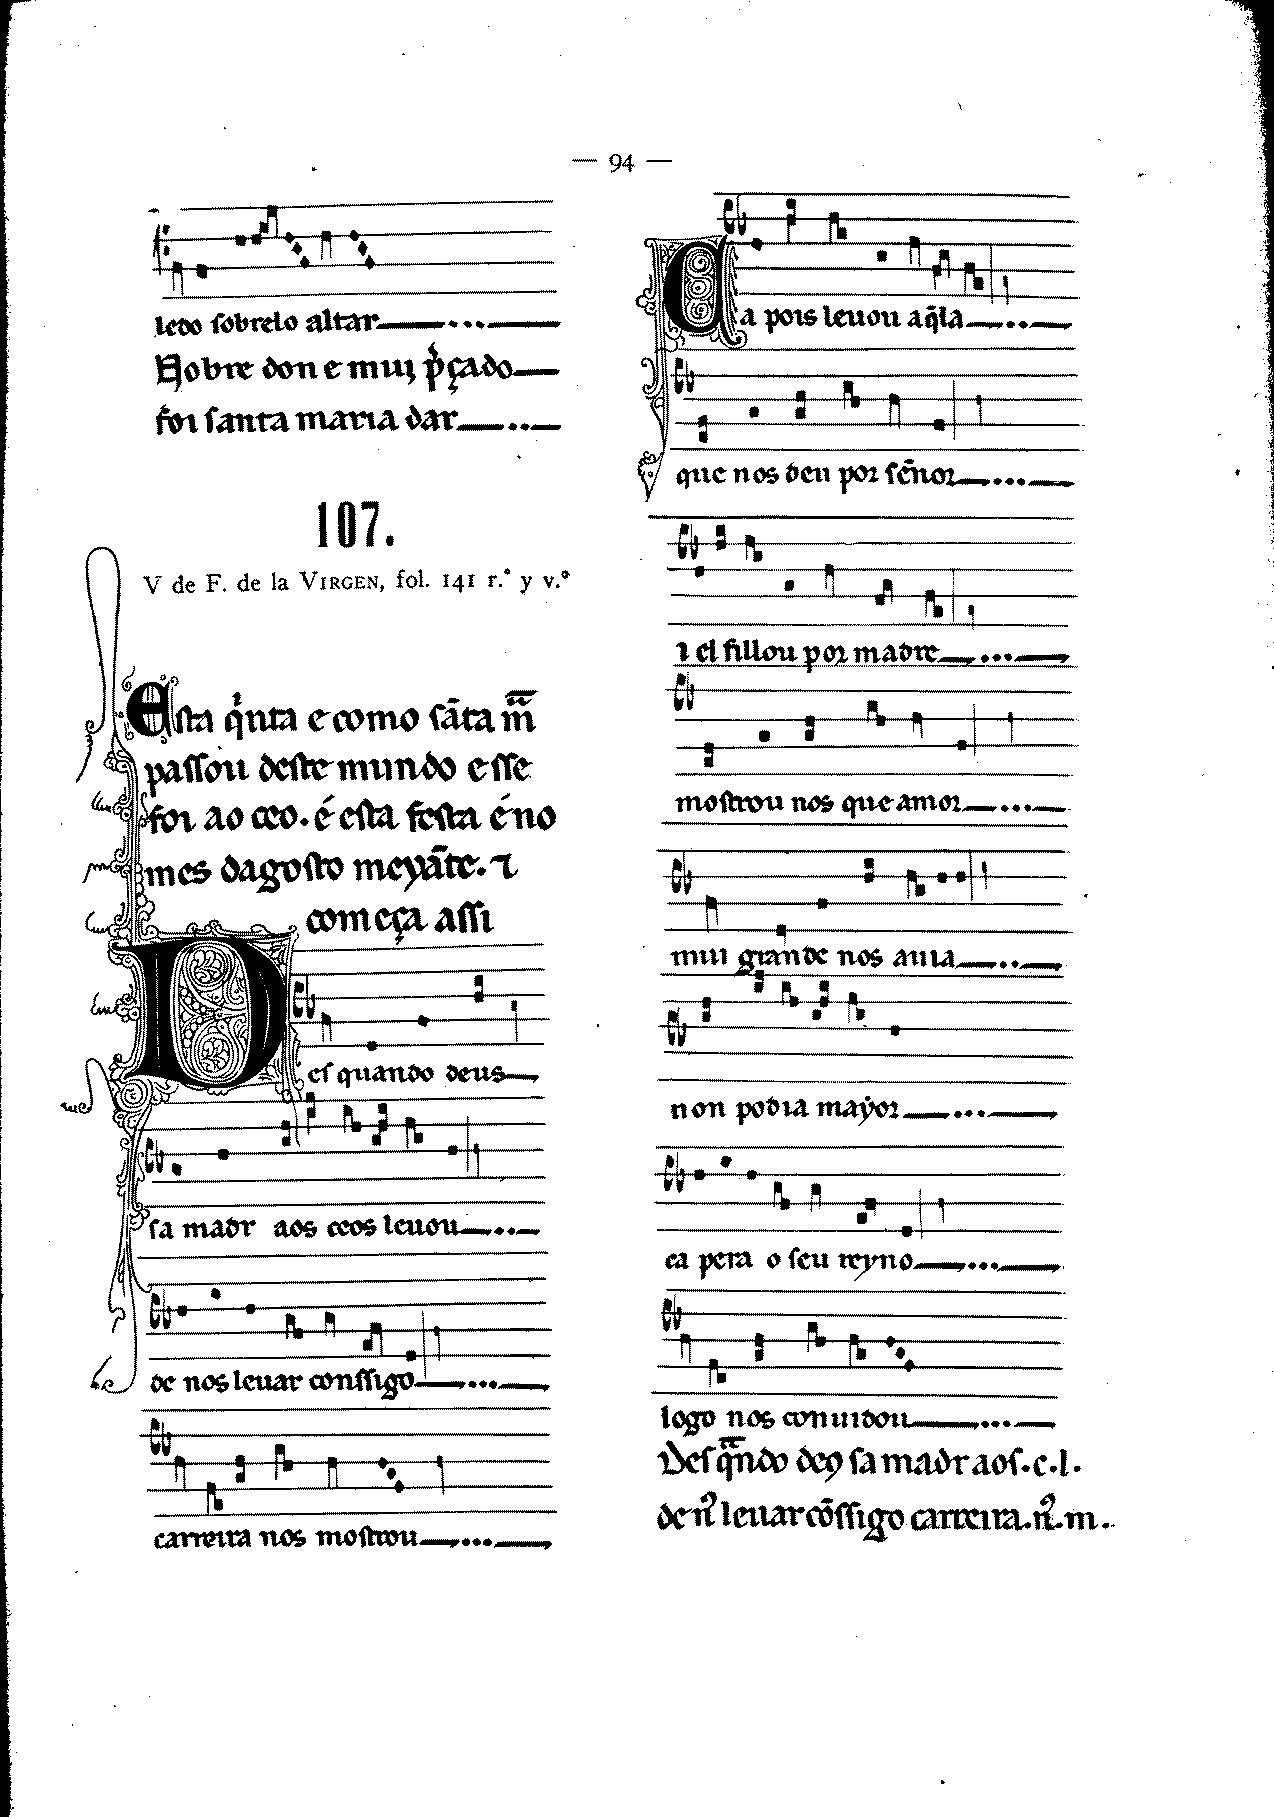 — 94 —
ledo sobrelo altar
Nobre don e mui p̃çado
foi santa maria dar
107.
V de F. de la VIRGEN, fol. 141 r.° y v.°
Esta q̃nta e como sãta m̃
passou deste mundo e sse
foi ao ceo. é esta festa é no
mes dagosto meyãte. ⁊
começa assi
Des quando deus
sa madr aos ceos leuou
de nos leuar conssigo
carreira nos mostrou
Ca pois leuou aq̃la
que nos deu por sẽnor
⁊ el fillou por madre
mostrou nos que amor
mui grande nos auia
non podia mayor
ca pera o seu reyno
logo nos conuidou
Des q̃ndo deꝯ sa madr aos.c.l.
de nꝰ leuar cõssigo carreira.nꝰ.m.